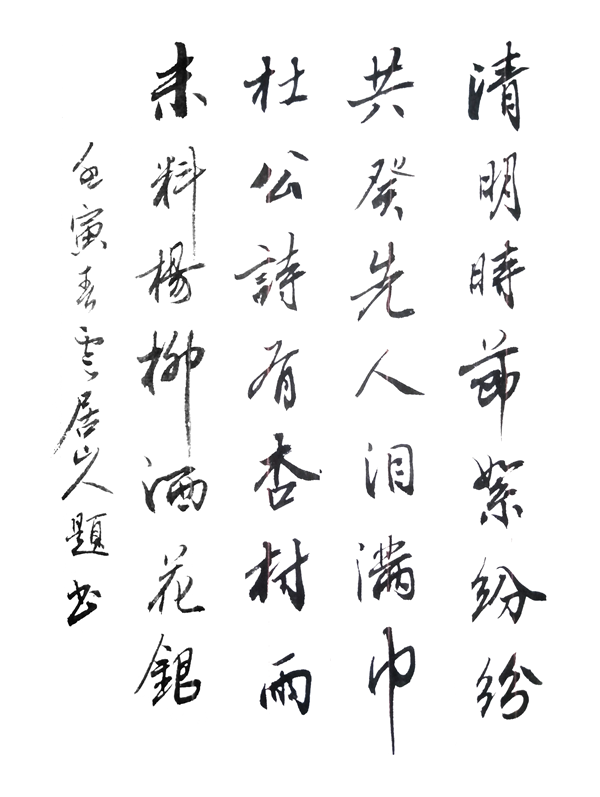 清明時節絮紛紛
共祭先人泪滿巾
杜公詩有杏村雨
未料楊柳洒花銀
壬寅春雲居山人題书